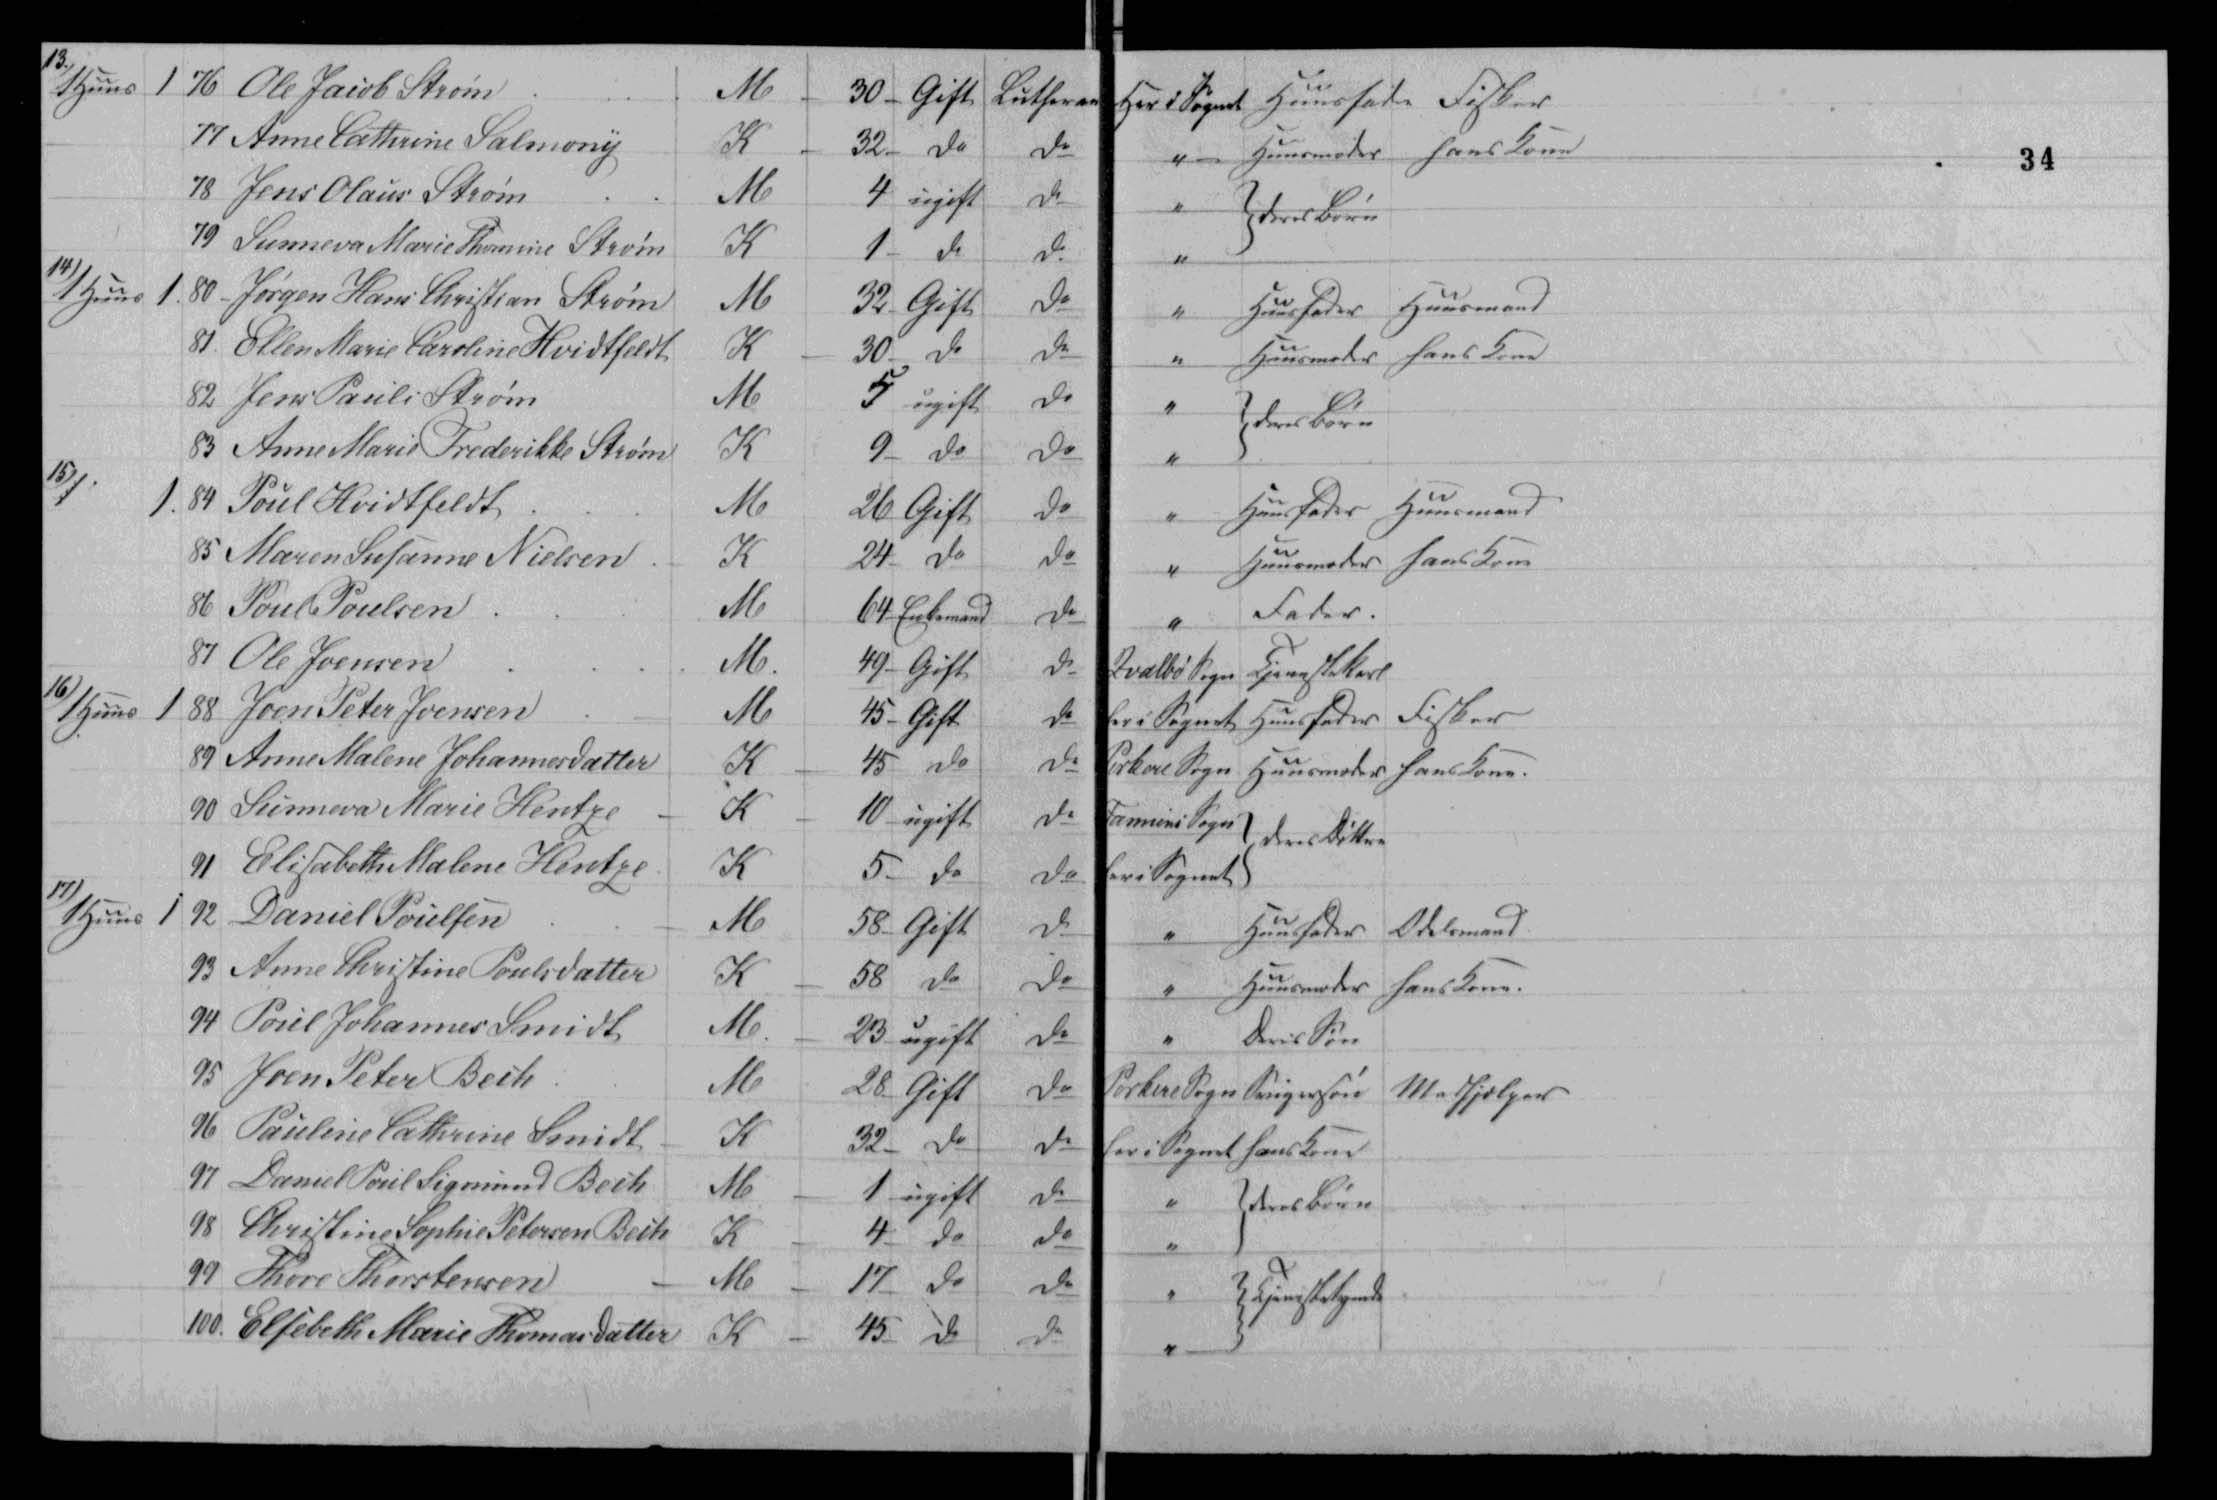 13.) 1 Huus 1 76 Ole Jacob Strøm M 30 Gift Lutheran Her i Sognet Huusfader Fisker
77 Anne Cathrine Salmony K 32 do do " Huusmoder hans Kone
34
78 Jens Olaus Strøm M 4 ugift do " } deres Børn
79 Sunneva Marie Thomine Strøm K 1 do do "
14) 1 Huus 1. 80 Jørgen Hans Christian Strøm M 32 Gift do " Huusfader Huusmand
81. Ellen Marie Caroline Hvidtfeldt K 30 do do " Huusmoder hans Kone
82 Jens Pauli Strøm M 5 ugift do " } deres Børn
83 Anne Marie Frederikke Strøm K 9 do do "
15) 1. 1. 84 Poul Hvidtfeldt M 26 Gift do " Huusfader Huusmand
85 Maren Susanne Nielsen K 24 do do " Huusmoder hans Kone
86 Poul Poulsen M 64 Enkemand do " Fader.
87 Ole Joensen M. 49 Gift do Qvalbø Sogn Tjenestekarl
16) 1 Huus 1 88 Joen Peter Joensen M 45 Gift do her i Sognet Huusfader Fisker
89 Anne Malene Johannesdatter K 45 do do Porkere Sogn Huusmoder hans Kone.
90 Sunneva Marie Hentze K 10 ugift do Famiens Sogn } deres Døttre
91 Elisabeth Malene Hentze K 5 do do her i Sognet
17) 1 Huus 1 92 Daniel Poulsen M 58 Gift do " Huusfader Odelsmand
93 Anne Christine Poulsdatter K 58 do do " Huusmoder hans Kone.
94 Poul Johannes Smidt M. 23 ugift do " deres Søn
95 Joen Peter Bech M 28 Gift do Porkere Sogn Svigersøn Medhjelper
96 Pauline Cathrine Smidt K 32 do do her i Sognet hans Kone
97 Daniel Poul Sigmund Bech M 1 ugift do " } deres Børn
98 Christine Sophie Petersen Bech K 4 do do "
99 Thore Thorstensen M 17 do do " } Tjenestetyende
100. Elsebeth Marie Thomasdatter K 45 do do "